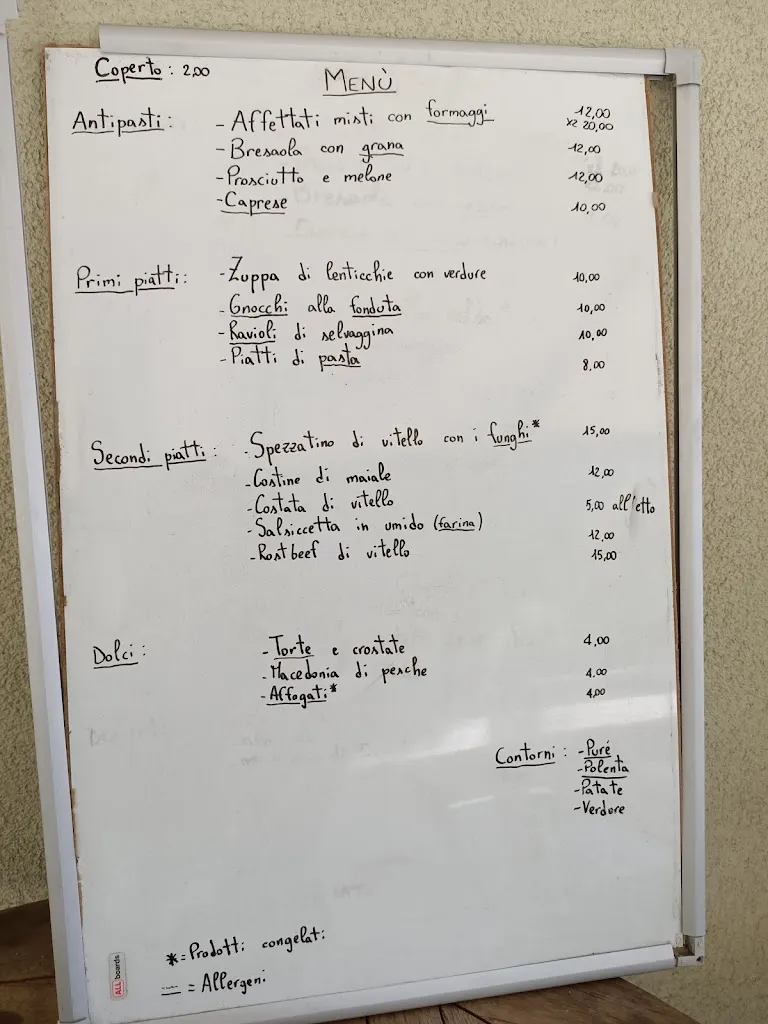 Coperto: 2,00
MENÙ
Antipasti: - Affettati misti con formaggi 12,00
x2 20,00
- Bresaola con grana 12,00
- Prosciutto e melone 12,00
- Caprese 10,00
Primi piatti: - Zuppa di lenticchie con verdure 10,00
- Gnocchi alla fonduta 10,00
- Ravioli di selvaggina 10,00
- Piatti di pasta 8,00
Secondi piatti: - Spezzatino di vitello con i funghi* 15,00
- Costine di maiale 12,00
- Costata di vitello 5,00 all'etto
- Salsiccetta in umido (farina) 12,00
- Rostbeef di vitello 15,00
Dolci: - Torte e crostate 4,00
- Macedonia di pesche 4,00
- Affogati* 4,00
Contorni: - Puré
- Polenta
- Patate
- Verdure
* = Prodotti congelati
__ = Allergeni
ALLboards